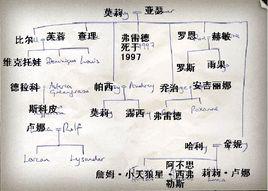 莫莉 亚瑟
比尔 芙蓉 弗雷德 罗恩 赫敏
死于
1997
维克托娃 Dominique Louis 罗斯 雨果
德拉科 Astoria 帕西 Audrey 乔治 安吉丽娜
Greengrass
斯科皮 莫莉 露西 弗雷德 Roxanne
卢娜 Rolf
哈利 金妮
Lorcan Lysander
詹姆·小天狼星 阿不思·西弗勒斯 莉莉·卢娜